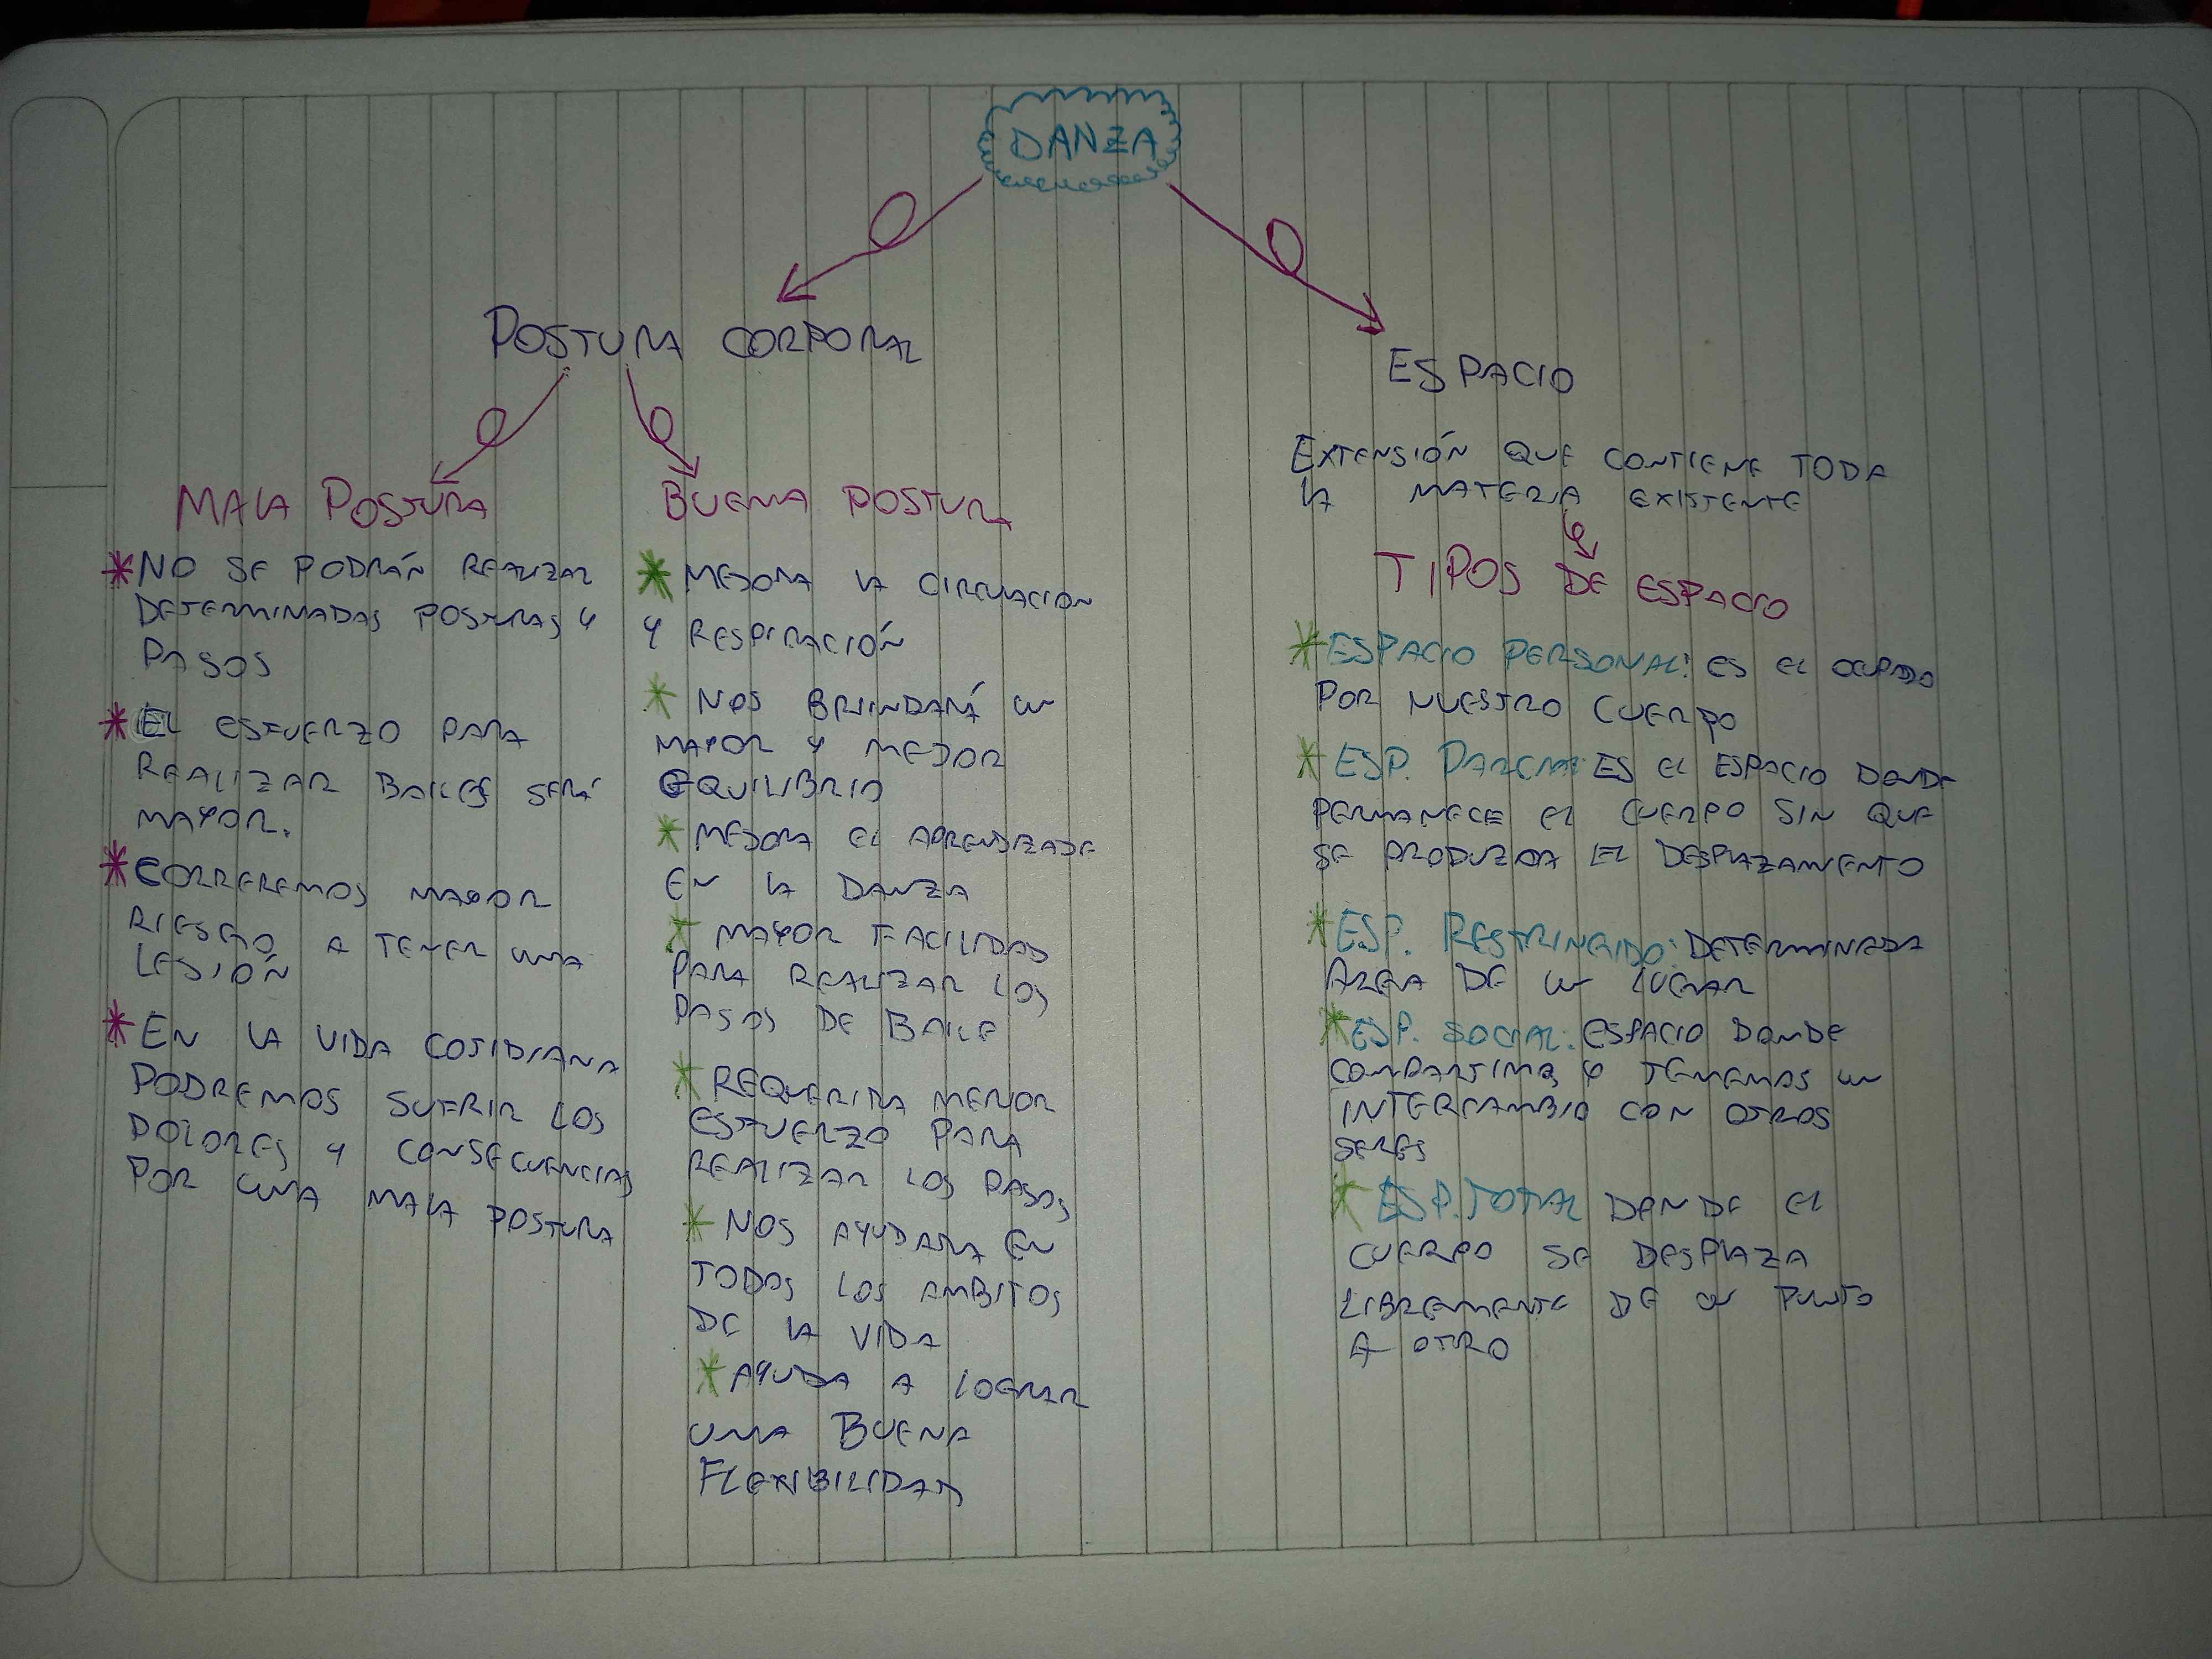 DANZA
POSTURA CORPORAL
MALA POSTURA
*NO SE PODRÁN REALIZAR
DETERMINADAS POSTURAS Y
PASOS
*EL ESFUERZO PARA
REALIZAR BAILES SERÁ
MAYOR.
*CORREREMOS MAYOR
RIESGO A TENER UNA
LESIÓN
*EN LA VIDA COTIDIANA
PODREMOS SUFRIR LOS
DOLORES Y CONSECUENCIAS
POR UNA MALA POSTURA
BUENA POSTURA
*MEJORA LA CIRCULACIÓN
Y RESPIRACIÓN
* NOS BRINDARÁ UN
MAYOR Y MEJOR
EQUILIBRIO
*MEJORA EL APRENDIZAJE
EN LA DANZA
* MAYOR FACILIDAD
PARA REALIZAR LOS
PASOS DE BAILE
*REQUERIRA MENOR
ESFUERZO PARA
REALIZAR LOS PASOS
* NOS AYUDARA EN
TODOS LOS AMBITOS
DE LA VIDA
*AYUDA A LOGRAR
UNA BUENA
FLEXIBILIDAD
ESPACIO
EXTENSIÓN QUE CONTIENE TODA
LA MATERIA EXISTENTE
TIPOS DE ESPACIO
*ESPACIO PERSONAL: ES EL OCUPADO
POR NUESTRO CUERPO
* ESP. PARCIAL: ES EL ESPACIO DONDE
PERMANECE EL CUERPO SIN QUE
SE PRODUZCA EL DESPLAZAMIENTO
*ESP. RESTRINGIDO: DETERMINADA
AREA DE UN LUGAR
*ESP. SOCIAL: ESPACIO DONDE
COMPARTIMOS Y TENEMOS UN
INTERCAMBIO CON OTROS
SERES
* ESP. TOTAL DONDE EL
CUERPO SE DESPLAZA
LIBREMENTE DE UN PUNTO
A OTRO